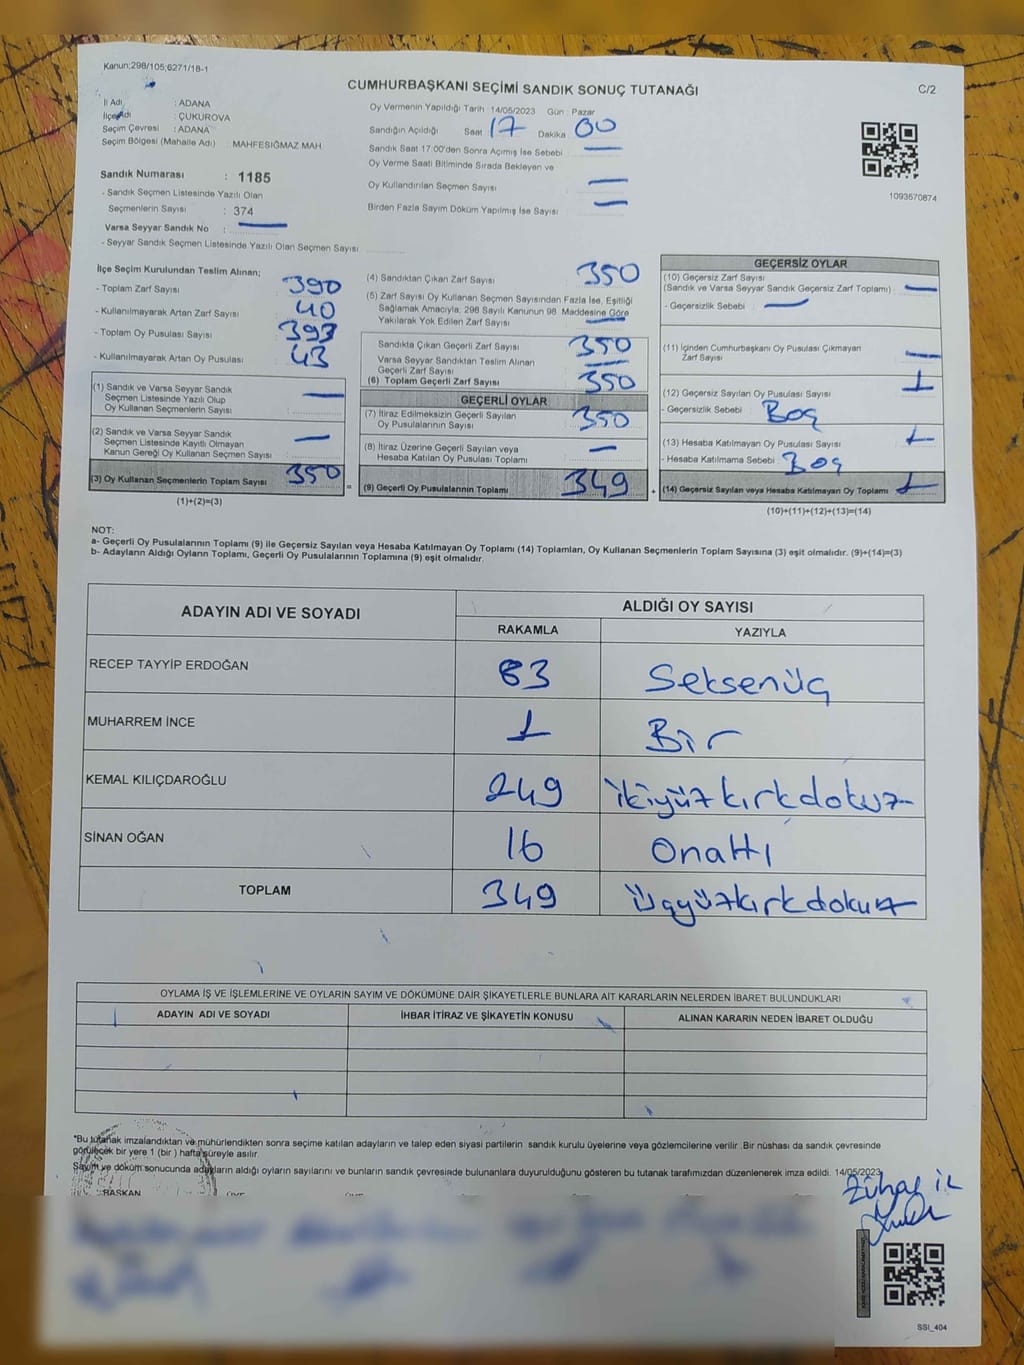 Kanun;298/105;6271/18-1
CUMHURBAŞKANI SEÇİMİ SANDIK SONUÇ TUTANAĞI
C/2
İl Adı : ADANA
İlçe Adı : ÇUKUROVA
Seçim Çevresi : ADANA
Seçim Bölgesi (Mahalle Adı) : MAHFESIĞMAZ MAH.
Sandık Numarası : 1185
- Sandık Seçmen Listesinde Yazılı Olan
Seçmenlerin Sayısı : 374
Varsa Seyyar Sandık No : —
- Seyyar Sandık Seçmen Listesinde Yazılı Olan Seçmen Sayısı
Oy Vermenin Yapıldığı Tarih : 14/05/2023 Gün : Pazar
Sandığın Açıldığı Saat 17 Dakika 00
Sandık Saat 17:00'den Sonra Açımış İse Sebebi : —
Oy Verme Saati Bitiminde Sırada Bekleyen ve
Oy Kullandırılan Seçmen Sayısı : —
Birden Fazla Sayım Döküm Yapılmış İse Sayısı : —
1093570874
İlçe Seçim Kurulundan Teslim Alınan;
- Toplam Zarf Sayısı : 390
- Kullanılmayarak Artan Zarf Sayısı : 40
- Toplam Oy Pusulası Sayısı : 393
- Kullanılmayarak Artan Oy Pusulası : 43
(1) Sandık ve Varsa Seyyar Sandık
Seçmen Listesinde Yazılı Olup
Oy Kullanan Seçmenlerin Sayısı : —
(2) Sandık ve Varsa Seyyar Sandık
Seçmen Listesinde Kayıtlı Olmayan
Kanun Gereği Oy Kullanan Seçmen Sayısı : —
(3) Oy Kullanan Seçmenlerin Toplam Sayısı 350 =
(1)+(2)=(3)
(4) Sandıktan Çıkan Zarf Sayısı : 350
(5) Zarf Sayısı Oy Kullanan Seçmen Sayısından Fazla İse, Eşitliği
Sağlamak Amacıyla, 298 Sayılı Kanunun 98. Maddesine Göre
Yakılarak Yok Edilen Zarf Sayısı : —
Sandıkta Çıkan Geçerli Zarf Sayısı : 350
Varsa Seyyar Sandıktan Teslim Alınan
Geçerli Zarf Sayısı : —
(6) Toplam Geçerli Zarf Sayısı : 350
GEÇERLİ OYLAR
(7) İtiraz Edilmeksizin Geçerli Sayılan
Oy Pusulalarının Sayısı : 350
(8) İtiraz Üzerine Geçerli Sayılan veya
Hesaba Katılan Oy Pusulası Toplamı : —
(9) Geçerli Oy Pusulalarının Toplamı 349 +
GEÇERSİZ OYLAR
(10) Geçersiz Zarf Sayısı
(Sandık ve Varsa Seyyar Sandık Geçersiz Zarf Toplamı) : —
- Geçersizlik Sebebi : —
(11) İçinden Cumhurbaşkanı Oy Pusulası Çıkmayan
Zarf Sayısı : —
(12) Geçersiz Sayılan Oy Pusulası Sayısı : 1
- Geçersizlik Sebebi : Boş
(13) Hesaba Katılmayan Oy Pusulası Sayısı : 1
- Hesaba Katılmama Sebebi : Boş
(14) Geçersiz Sayılan veya Hesaba Katılmayan Oy Toplamı : 1
(10)+(11)+(12)+(13)=(14)
NOT:
a- Geçerli Oy Pusulalarının Toplamı (9) ile Geçersiz Sayılan veya Hesaba Katılmayan Oy Toplamı (14) Toplamları, Oy Kullanan Seçmenlerin Toplam Sayısına (3) eşit olmalıdır. (9)+(14)=(3)
b- Adayların Aldığı Oyların Toplamı, Geçerli Oy Pusulalarının Toplamına (9) eşit olmalıdır.
ADAYIN ADI VE SOYADI ALDIĞI OY SAYISI
RAKAMLA YAZIYLA
RECEP TAYYİP ERDOĞAN 83 Seksenüç
MUHARREM İNCE 1 Bir
KEMAL KILIÇDAROĞLU 249 ikiyüzkırkdokuz
SİNAN OĞAN 16 Onaltı
TOPLAM 349 üçyüzkırkdokuz
OYLAMA İŞ VE İŞLEMLERİNE VE OYLARIN SAYIM VE DÖKÜMÜNE DAİR ŞİKAYETLERLE BUNLARA AİT KARARLARIN NELERDEN İBARET BULUNDUKLARI
ADAYIN ADI VE SOYADI İHBAR İTİRAZ VE ŞİKAYETİN KONUSU ALINAN KARARIN NEDEN İBARET OLDUĞU
*Bu tutanak imzalandıktan ve mühürlendikten sonra seçime katılan adayların ve talep eden siyasi partilerin sandık kurulu üyelerine veya gözlemcilerine verilir. Bir nüshası da sandık çevresinde
görülecek bir yere 1 (bir) hafta süreyle asılır.
Sayım ve döküm sonucunda adayların aldığı oyların sayılarını ve bunların sandık çevresinde bulunanlara duyurulduğunu gösteren bu tutanak tarafımızdan düzenlenerek imza edildi. 14/05/2023
BAŞKAN
SSI_404